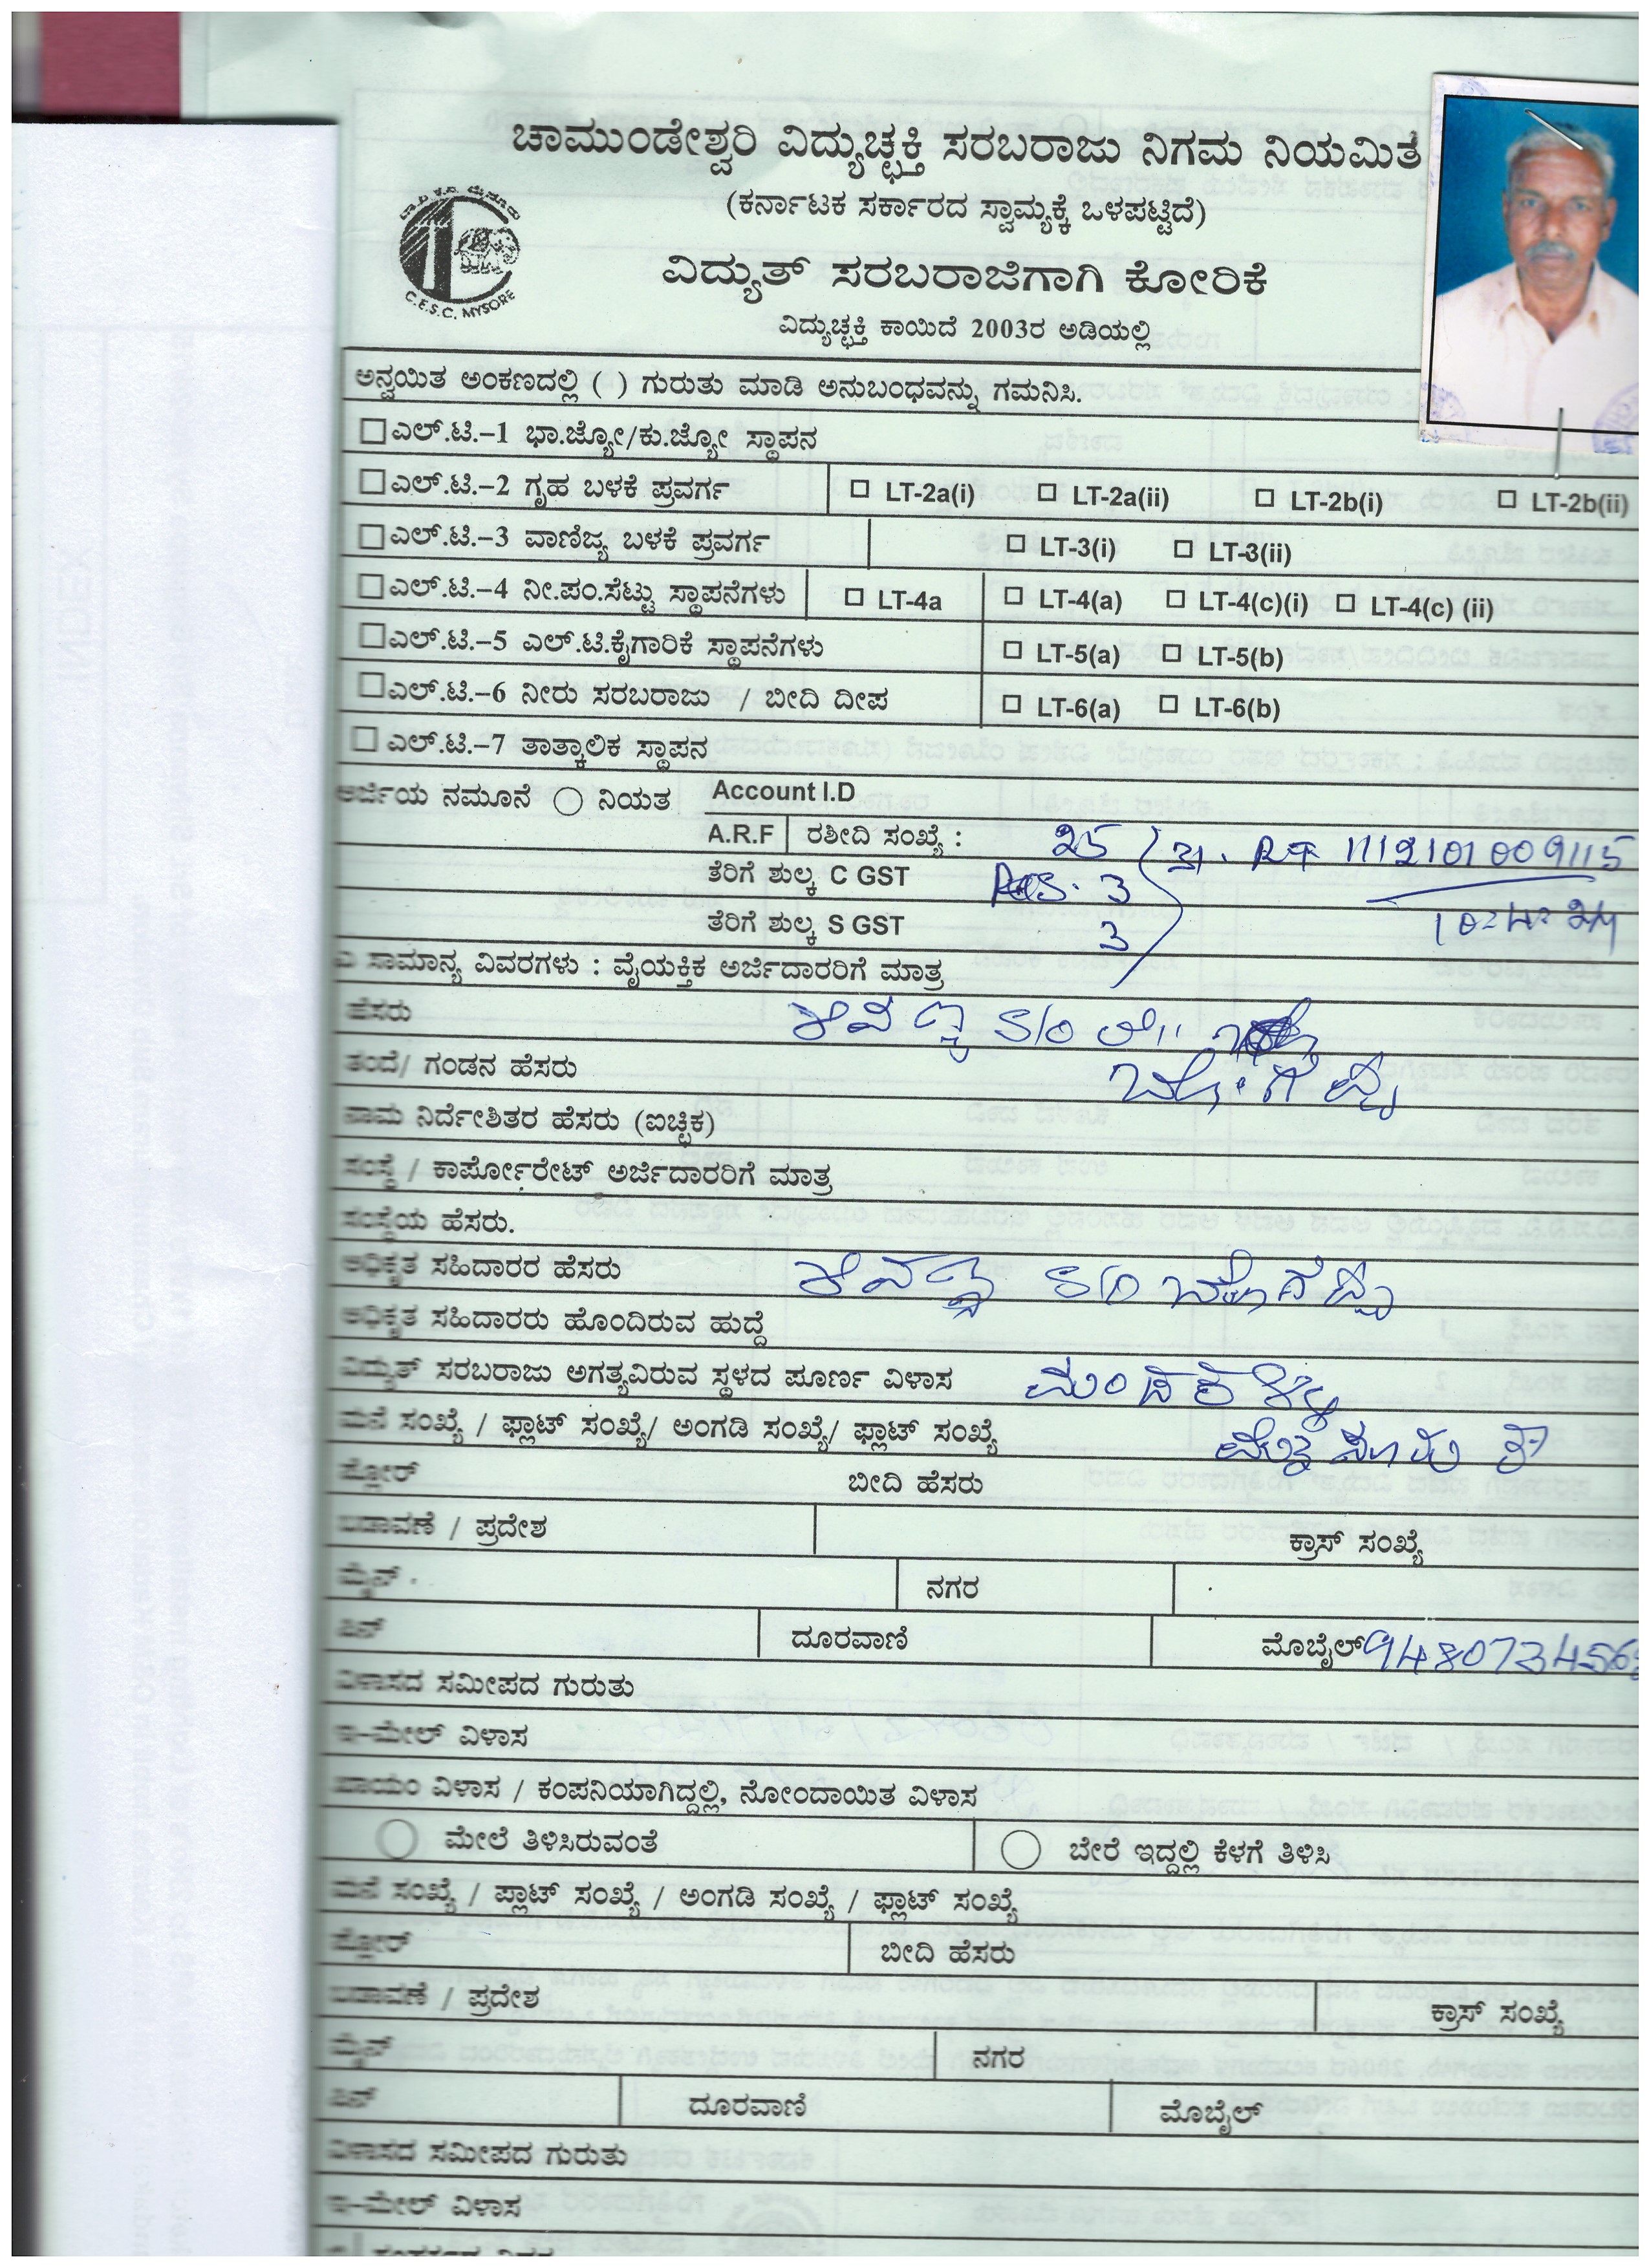 ಚಾಮುಂಡೇಶ್ವರಿ ವಿದ್ಯುಚ್ಛಕ್ತಿ ಸರಬರಾಜು ನಿಗಮ ನಿಯಮಿತ
(ಕರ್ನಾಟಕ ಸರ್ಕಾರದ ಸ್ವಾಮ್ಯಕ್ಕೆ ಒಳಪಟ್ಟಿದೆ)
C.E.S.C. MYSORE
ವಿದ್ಯುತ್ ಸರಬರಾಜಿಗಾಗಿ ಕೋರಿಕೆ
ವಿದ್ಯುಚ್ಛಕ್ತಿ ಕಾಯಿದೆ 2003ರ ಅಡಿಯಲ್ಲಿ
ಅನ್ವಯಿತ ಅಂಕಣದಲ್ಲಿ ( ) ಗುರುತು ಮಾಡಿ ಅನುಬಂಧವನ್ನು ಗಮನಿಸಿ.
ಎಲ್.ಟಿ.–1 ಭಾ.ಜ್ಯೋ/ಕು.ಜ್ಯೋ ಸ್ಥಾಪನ
ಎಲ್.ಟಿ.–2 ಗೃಹ ಬಳಕೆ ಪ್ರವರ್ಗ LT-2a(i) LT-2a(ii) LT-2b(i) LT-2b(ii)
ಎಲ್.ಟಿ.–3 ವಾಣಿಜ್ಯ ಬಳಕೆ ಪ್ರವರ್ಗ LT-3(i) LT-3(ii)
ಎಲ್.ಟಿ.–4 ನೀ.ಪಂ.ಸೆಟ್ಟು ಸ್ಥಾಪನೆಗಳು LT-4a LT-4(a) LT-4(c)(i) LT-4(c) (ii)
ಎಲ್.ಟಿ.–5 ಎಲ್.ಟಿ.ಕೈಗಾರಿಕೆ ಸ್ಥಾಪನೆಗಳು LT-5(a) LT-5(b)
ಎಲ್.ಟಿ.–6 ನೀರು ಸರಬರಾಜು / ಬೀದಿ ದೀಪ LT-6(a) LT-6(b)
ಎಲ್.ಟಿ.–7 ತಾತ್ಕಾಲಿಕ ಸ್ಥಾಪನ
ಅರ್ಜಿಯ ನಮೂನೆ ನಿಯತ Account I.D
A.R.F ರಶೀದಿ ಸಂಖ್ಯೆ : 25
ತೆರಿಗೆ ಶುಲ್ಕ C GST 3
ತೆರಿಗೆ ಶುಲ್ಕ S GST 3
ಎ ಸಾಮಾನ್ಯ ವಿವರಗಳು : ವೈಯಕ್ತಿಕ ಅರ್ಜಿದಾರರಿಗೆ ಮಾತ್ರ
ಹೆಸರು S/O
ತಂದೆ/ ಗಂಡನ ಹೆಸರು
ನಾಮ ನಿರ್ದೇಶಿತರ ಹೆಸರು (ಐಚ್ಛಿಕ)
ಸಂಸ್ಥೆ / ಕಾರ್ಪೋರೇಟ್ ಅರ್ಜಿದಾರರಿಗೆ ಮಾತ್ರ
ಸಂಸ್ಥೆಯ ಹೆಸರು.
ಅಧಿಕೃತ ಸಹಿದಾರರ ಹೆಸರು S/O
ಅಧಿಕೃತ ಸಹಿದಾರರು ಹೊಂದಿರುವ ಹುದ್ದೆ
ವಿದ್ಯುತ್ ಸರಬರಾಜು ಅಗತ್ಯವಿರುವ ಸ್ಥಳದ ಪೂರ್ಣ ವಿಳಾಸ
ಮನೆ ಸಂಖ್ಯೆ / ಫ್ಲಾಟ್ ಸಂಖ್ಯೆ/ ಅಂಗಡಿ ಸಂಖ್ಯೆ/ ಫ್ಲಾಟ್ ಸಂಖ್ಯೆ
ಫ್ಲೋರ್ ಬೀದಿ ಹೆಸರು
ಬಡಾವಣೆ / ಪ್ರದೇಶ ಕ್ರಾಸ್ ಸಂಖ್ಯೆ
ಮೈನ್ ನಗರ
ಪಿನ್ ದೂರವಾಣಿ ಮೊಬೈಲ್
ವಿಳಾಸದ ಸಮೀಪದ ಗುರುತು
ಇ–ಮೇಲ್ ವಿಳಾಸ
ಖಾಯಂ ವಿಳಾಸ / ಕಂಪನಿಯಾಗಿದ್ದಲ್ಲಿ, ನೋಂದಾಯಿತ ವಿಳಾಸ
ಮೇಲೆ ತಿಳಿಸಿರುವಂತೆ ಬೇರೆ ಇದ್ದಲ್ಲಿ ಕೆಳಗೆ ತಿಳಿಸಿ
ಮನೆ ಸಂಖ್ಯೆ / ಪ್ಲಾಟ್ ಸಂಖ್ಯೆ / ಅಂಗಡಿ ಸಂಖ್ಯೆ / ಫ್ಲಾಟ್ ಸಂಖ್ಯೆ
ಫ್ಲೋರ್ ಬೀದಿ ಹೆಸರು
ಬಡಾವಣೆ / ಪ್ರದೇಶ ಕ್ರಾಸ್ ಸಂಖ್ಯೆ
ಮೈನ್ ನಗರ
ಪಿನ್ ದೂರವಾಣಿ ಮೊಬೈಲ್
ವಿಳಾಸದ ಸಮೀಪದ ಗುರುತು
ಇ–ಮೇಲ್ ವಿಳಾಸ